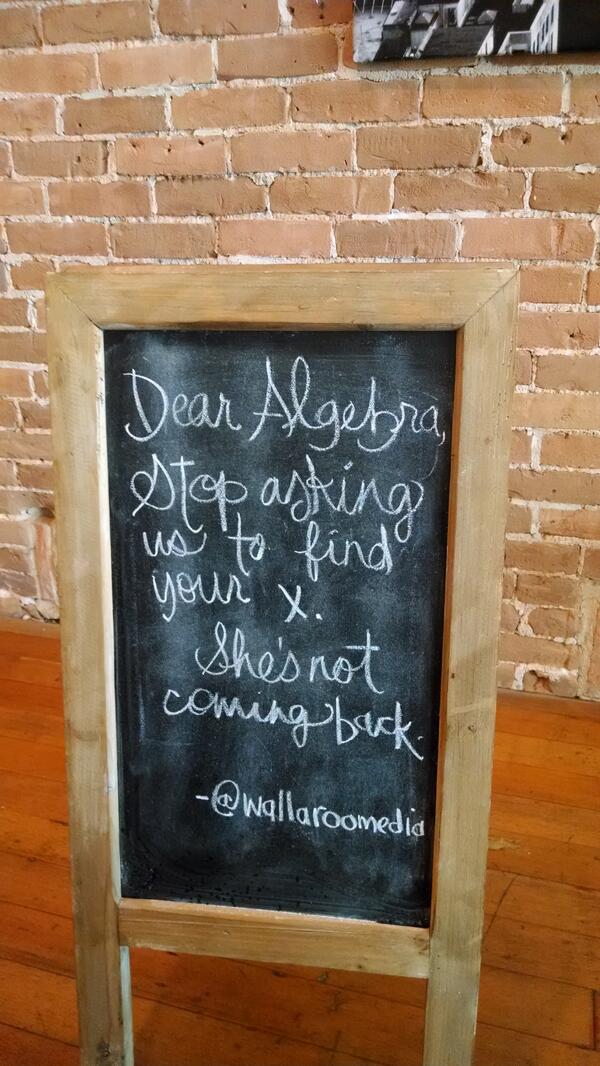 Dear Algebra,
Stop asking
us to find
your x.
She's not
coming back.
-@wallaroomedia